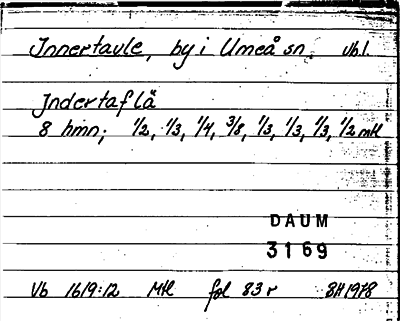 Innertavle, by i Umeå sn. Vbl.
Indertaflä
8 hmn; 1/2, 1/3, 1/4, 3/8, 1/3, 1/3, 1/3, 1/2 mtl
DAUM
3169
Vb 1619:12 Mtl fol 83 r BH 1978